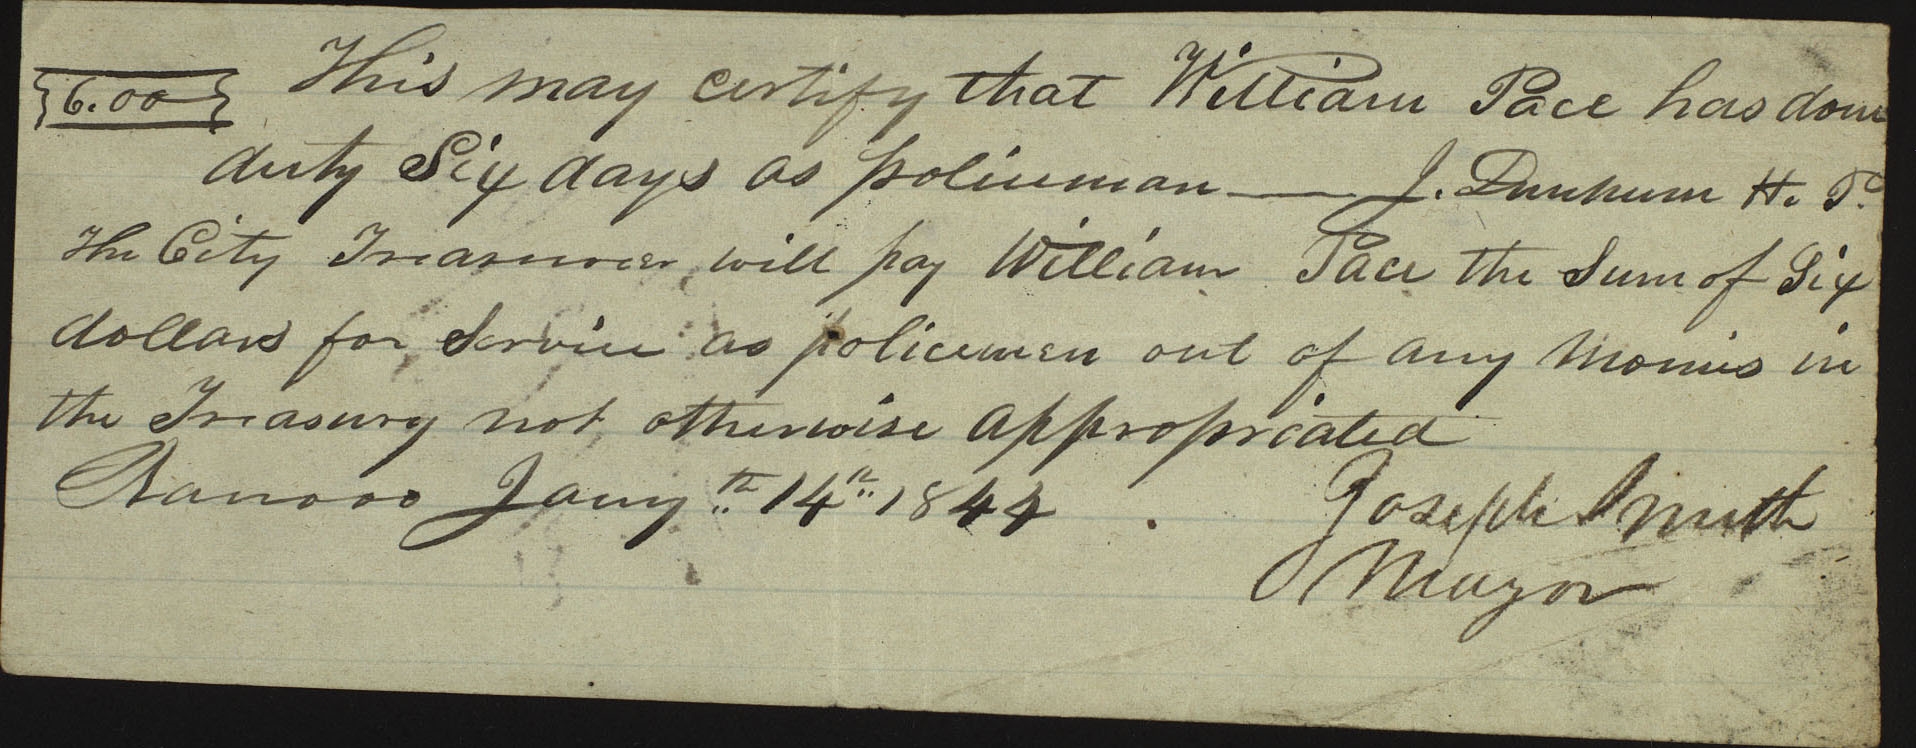 {6.00} This may certify that William Pace has done
duty Six days as policeman — J. Dunham H. P.
The City Treasurer will pay William Pace the Sum of Six
dollars for Service as policemen out of any Monies in
the Treasury not otherwise appropriated
Nauvoo Jany th 14th 1844 Joseph Smith
Mayor